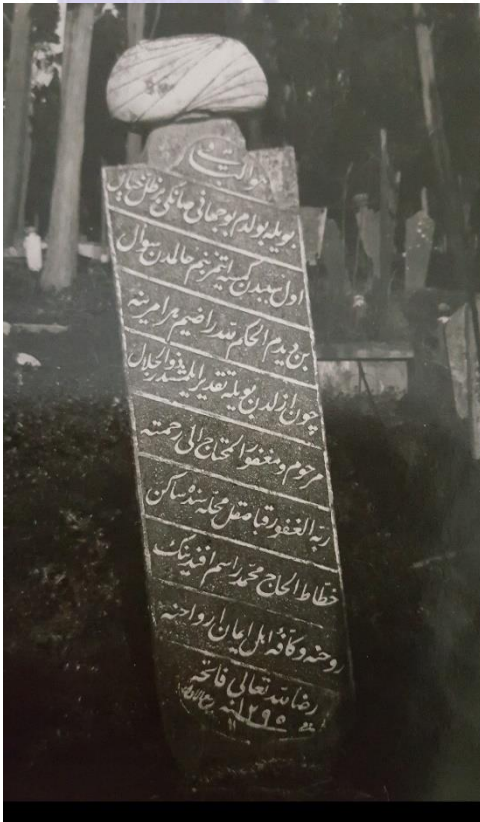 هو الباقی
بویله بولدم بو جهانی صانکی بر ظل خیال
اول سببدن کیمسه ایتمز بنم حالمدن سوال
بن دیدم الحکم لله راضیم هر امرینه
چون ازلدن بویله تقدیر ایلمش ذو الجلال
مرحوم و مغفور المحتاج الی رحمته
ربه الغفور قبا صقل محله سنده ساکن
خطاط الحاج محمد راسم افندینک
روحنه و کافه اهل ایمان ارواحنه
رضاء لله تعالی فاتحه
سنه ١٢٩٥